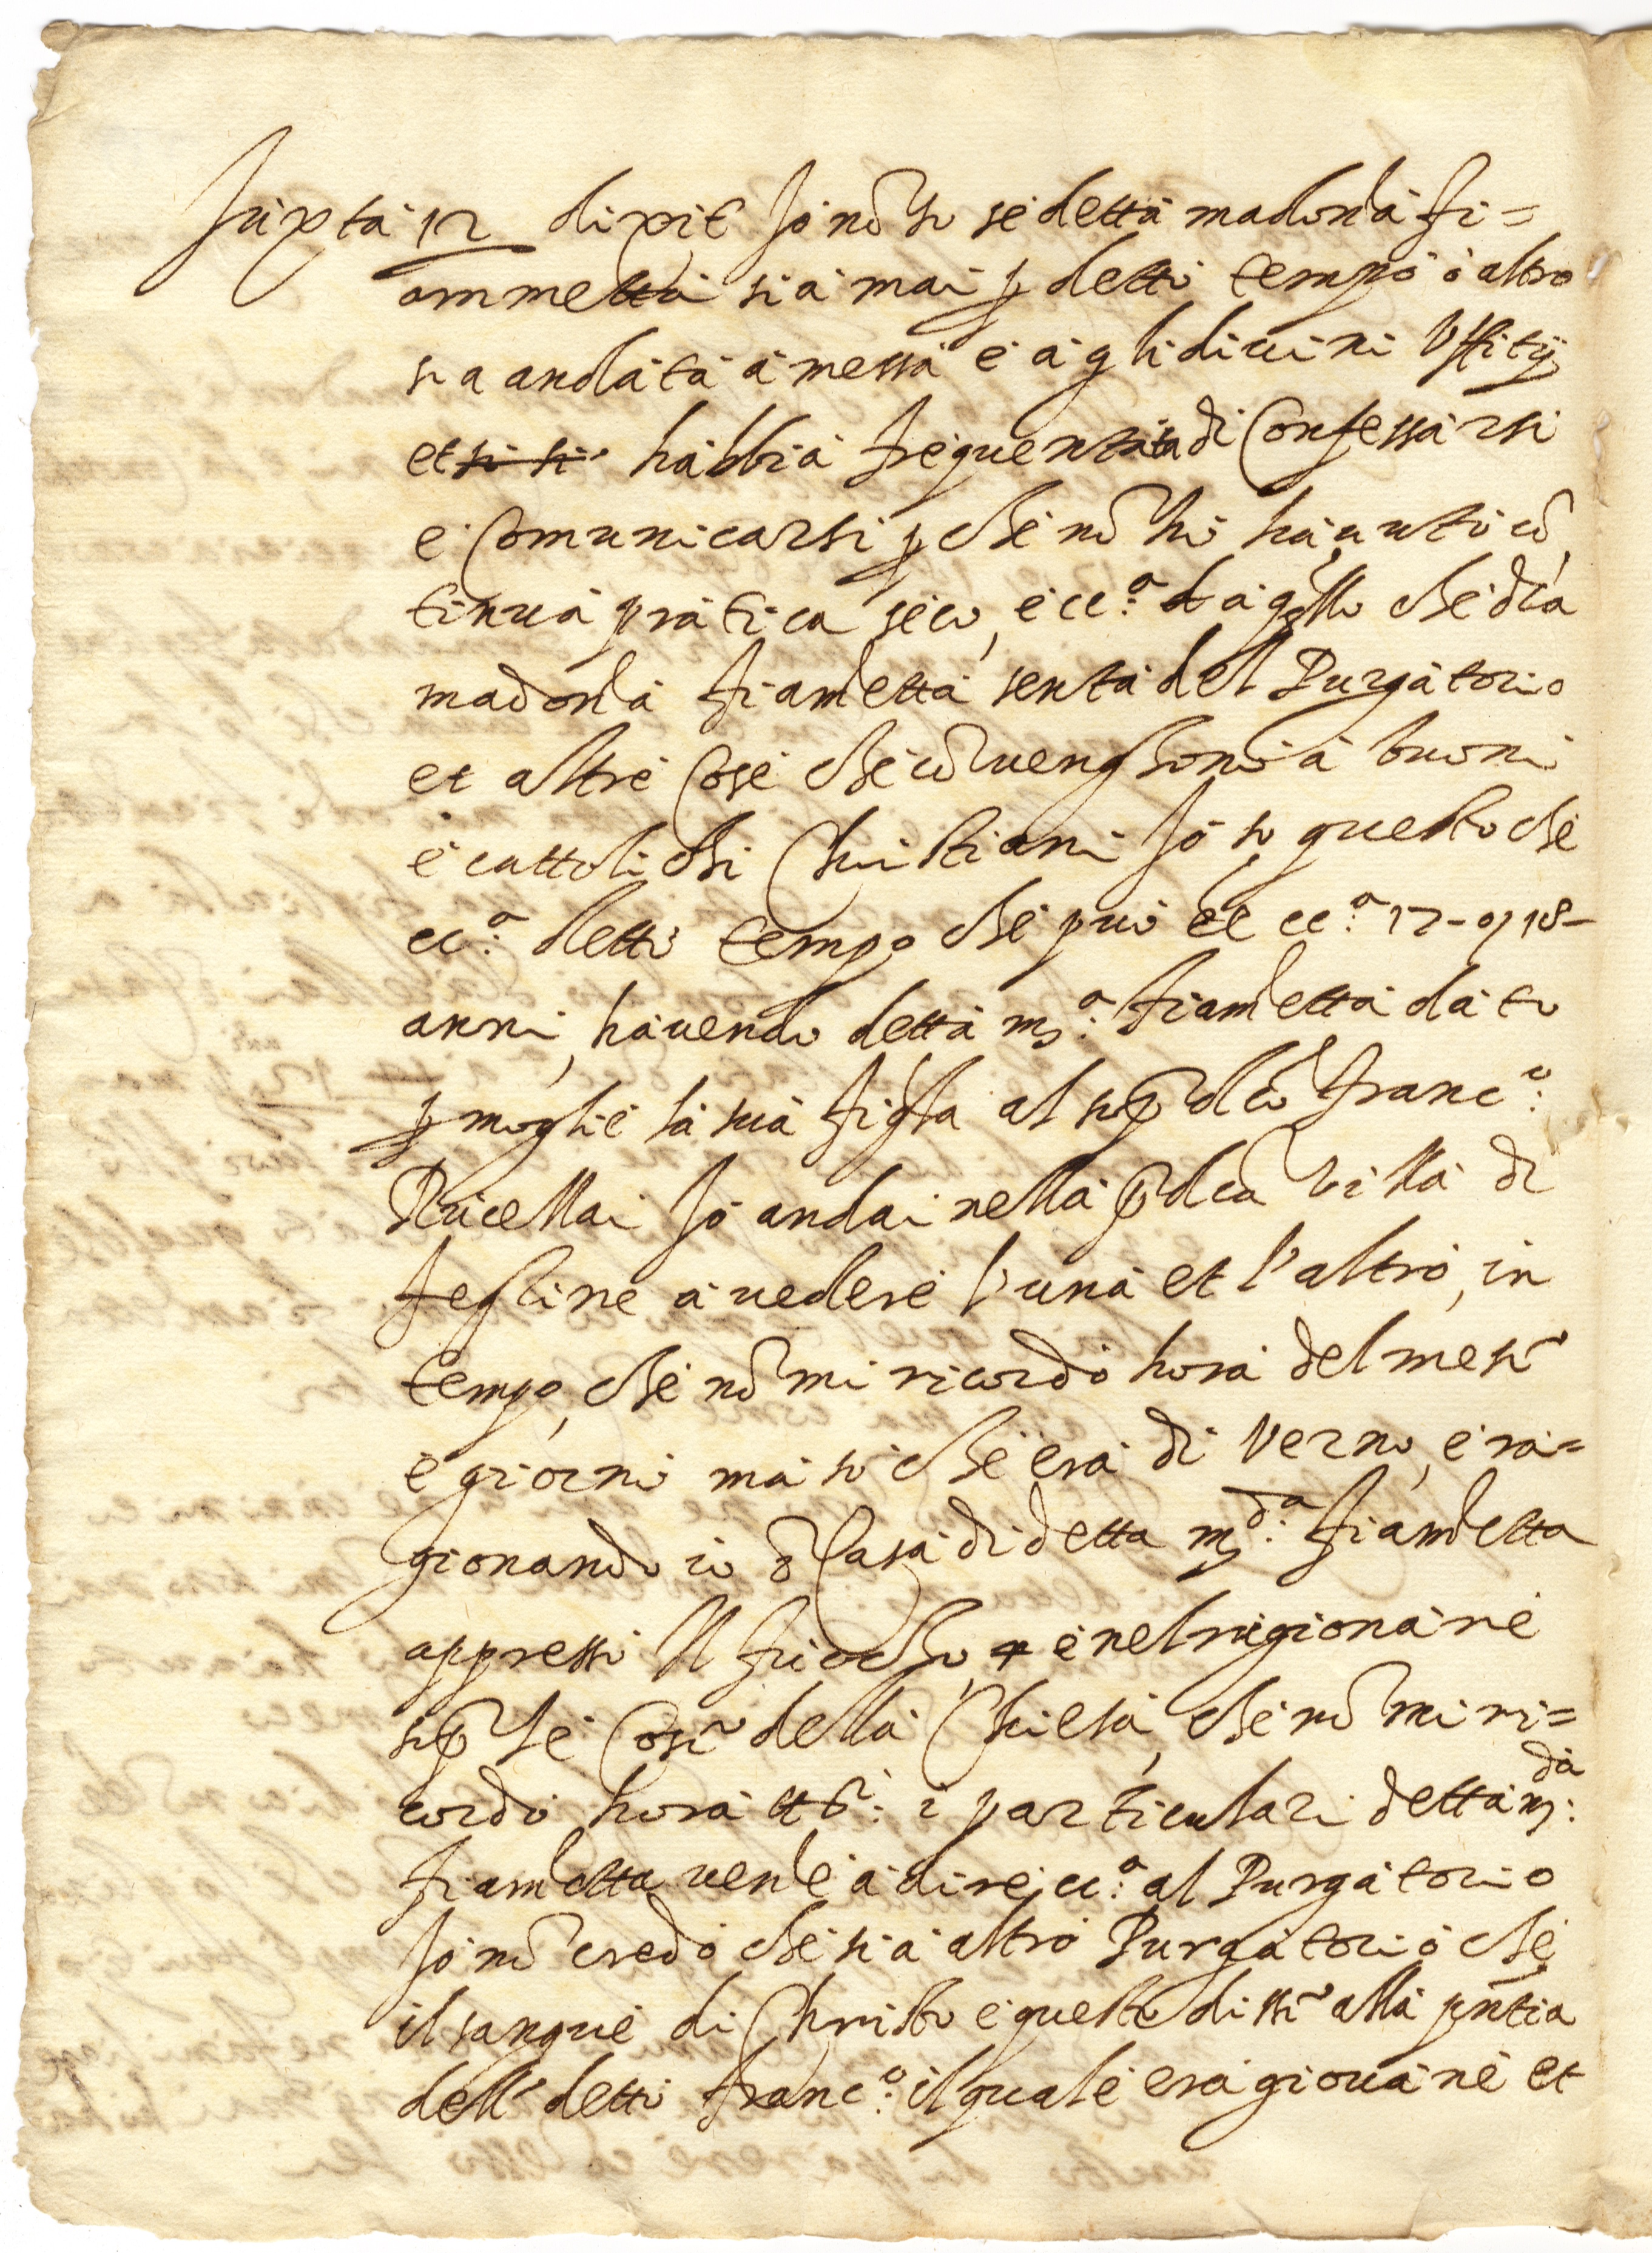 Juxta 12 dixit Jo nõ so se detta madonna fi=
ammetta sia mai ꝑ detto tempo ò altro
sia andata à messa e à gli divini Vffitij
et si si habbia frequentata di Confessarsi
e Comunicarsi ꝑche nõ hò hauuto cõ
tinua pratica seco, e cc.ª à qllo che dca
madonna fiammetta senta del Purgatorio
et altre Cose che cõuenghono à buoni
e cattolichi Christiani Jo so questo che
cc.ª detto tempo che può eẽ cc.ª 17 - o 18 -
anni, hauendo detta m.ª fiammetta dato
ꝑ moglie la sua figla al sop̃ dco franc.º
Rucellai Jo andai nella p̃dca villa di
feghine à uedere l'una et l'altro, in
tempo, che nõ mi ricordo hora del mese
e giorno ma so che era di Verno, e ra=
gionando io ĩ Casa di detta m.ª fiammetta
appresso Il fuocho, e nel ragionare
sop̃ le Cose della Chiesa, che nõ mi ri=
cordo hora tt.i i particulari detta m.da
fiammetta uenne à dire, cc.ª al Purgatorio
Jo nõ credo che sia altro Purgatorio che
il sangue di Christo e questo disse alla pñtia
dell detto franc.º il quale era giouane et